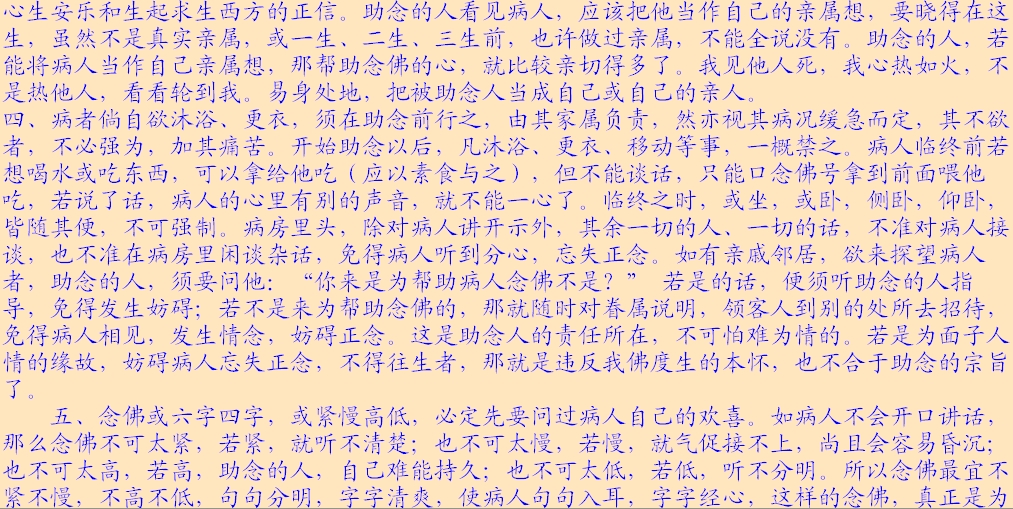 心生安乐和生起求生西方的正信。助念的人看见病人，应该把他当作自己的亲属想，要晓得在这
生，虽然不是真实亲属，或一生、二生、三生前，也许做过亲属，不能全说没有。助念的人，若
能将病人当作自己亲属想，那帮助念佛的心，就比较亲切得多了。我见他人死，我心热如火，不
是热他人，看看轮到我。易身处地，把被助念人当成自己或自己的亲人。
四、病者倘自欲沐浴、更衣，须在助念前行之，由其家属负责，然亦视其病况缓急而定，其不欲
者，不必强为，加其痛苦。开始助念以后，凡沐浴、更衣、移动等事，一概禁之。病人临终前若
想喝水或吃东西，可以拿给他吃（应以素食与之），但不能谈话，只能口念佛号拿到前面喂他
吃，若说了话，病人的心里有别的声音，就不能一心了。临终之时，或坐，或卧，侧卧，仰卧，
皆随其便，不可强制。病房里头，除对病人讲开示外，其余一切的人、一切的话，不准对病人接
谈，也不准在病房里闲谈杂话，免得病人听到分心，忘失正念。如有亲戚邻居，欲来探望病人
者，助念的人，须要问他：“你来是为帮助病人念佛不是？” 若是的话，便须听助念的人指
导，免得发生妨碍；若不是来为帮助念佛的，那就随时对眷属说明，领客人到别的处所去招待，
免得病人相见，发生情念，妨碍正念。这是助念人的责任所在，不可怕难为情的。若是为面子人
情的缘故，妨碍病人忘失正念，不得往生者，那就是违反我佛度生的本怀，也不合于助念的宗旨
了。
五、念佛或六字四字，或紧慢高低，必定先要问过病人自己的欢喜。如病人不会开口讲话，
那么念佛不可太紧，若紧，就听不清楚；也不可太慢，若慢，就气促接不上，尚且会容易昏沉；
也不可太高，若高，助念的人，自己难能持久；也不可太低，若低，听不分明。所以念佛最宜不
紧不慢，不高不低，句句分明，字字清爽，使病人句句入耳，字字经心，这样的念佛，真正是为